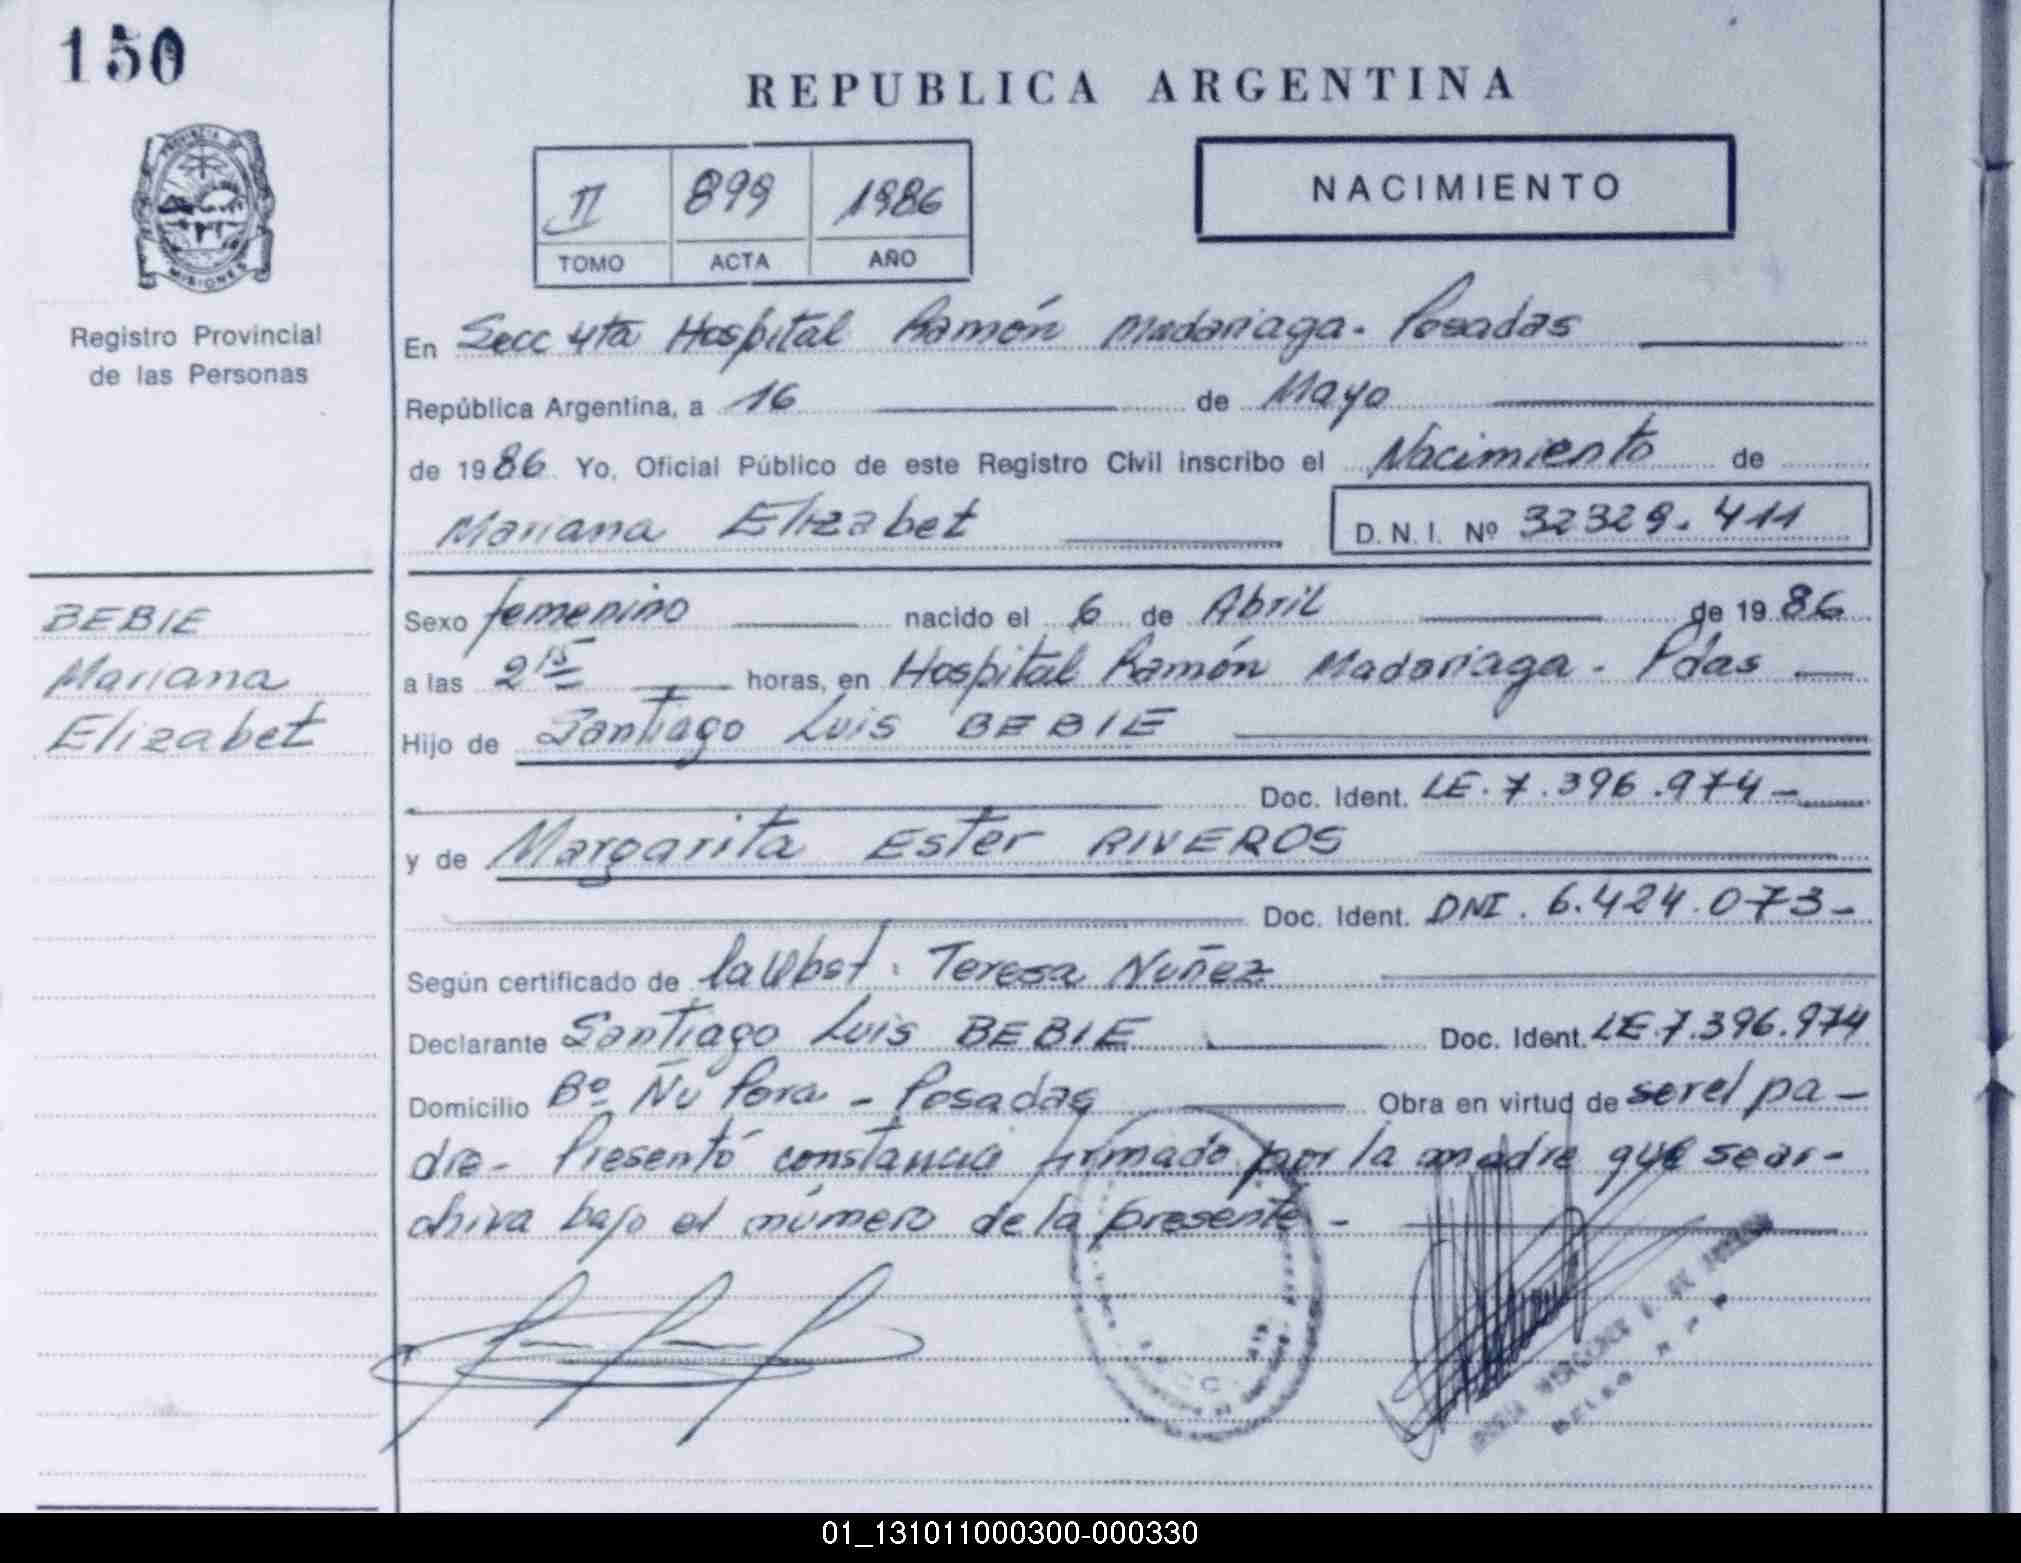 150
REPUBLICA ARGENTINA
PROVINCIA DE
MISIONES
Registro Provincial
de las Personas
II 899 1986
TOMO ACTA AÑO
NACIMIENTO
En Secc 4ta Hospital Ramón Madariaga. Posadas
República Argentina, a 16 de Mayo
de 1986. Yo, Oficial Público de este Registro Civil inscribo el Nacimiento de
Mariana Elizabet D.N.I. Nº 32329.411
BEBIE
Mariana
Elizabet
Sexo femenino nacido el 6 de Abril de 1986
a las 2 15 horas, en Hospital Ramón Madariaga. Pdas
Hijo de Santiago Luis BEBIE
Doc. Ident. LE.7.396.974-
y de Margarita Ester RIVEROS
Doc. Ident. DNI. 6.424.073-
Según certificado de Teresa Nuñez
Declarante Santiago Luis BEBIE Doc. Ident. LE.7.396.974
Domicilio Bº Ñu Pora - Posadas Obra en virtud de ser el pa-
dre- Presentó constancia firmado por la madre que se ar-
chiva bajo el número de la presente-
01_131011000300-000330